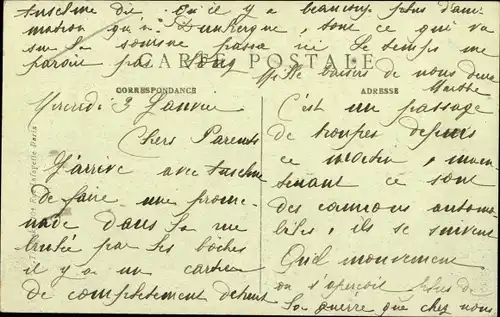 Mercredi 3 Janvier
Chers Parents
J'arrive avec Anselme
de faire une prome-
nade dans la rue
brulée par les boches
il y a un cartier
de complètement detruit
C'est un passage
de troupes depuis
ce matin, main-
tenant ce sont
des canons automo-
biles, ils se suivent
Quel mouvement
on s'aperçoit plus de
la guerre que chez nous
Anselme dit qu'il y a beaucoup plus d'ani-
mation qu'à Dunkerque, tout ce qui va
sur la somme passe ici Le temps me
parait pas long
Mille baisers de nous deux
Marthe
CARTE POSTALE
CORRESPONDANCE
ADRESSE
Lafayette Paris